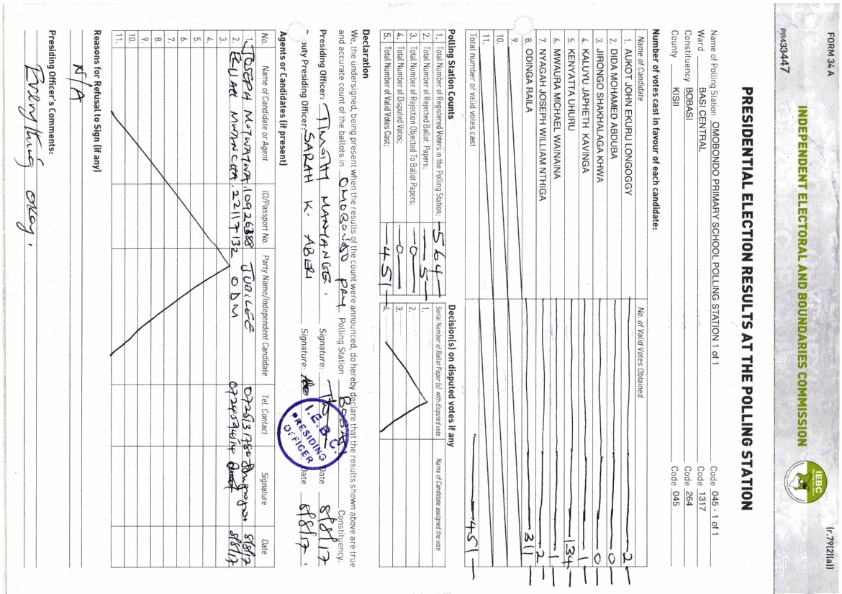 FORM 34 A
(r.79(2)(a))
INDEPENDENT ELECTORAL AND BOUNDARIES COMMISSION
IEBC
PS433447
PRESIDENTIAL ELECTION RESULTS AT THE POLLING STATION
Name of Polling Station OMOBONDO PRIMARY SCHOOL POLLING STATION 1 of 1 Code 045 - 1 of 1
Ward BASI CENTRAL Code 1317
Constituency BOBASI Code 264
County KISII Code 045
Number of votes cast in favour of each candidate:
Name of Candidate No. of Valid Votes Obtained
1. AUKOT JOHN EKURU LONGOGGY 2
2. DIDA MOHAMED ABDUBA 0
3. JIRONGO SHAKHALAGA KHWA 0
4. KALUYU JAPHETH KAVINGA 1
5. KENYATTA UHURU 134
6. MWAURA MICHAEL WAINAINA 1
7. NYAGAH JOSEPH WILLIAM NTHIGA 2
8. ODINGA RAILA 311
9.
10.
11.
Total number of valid votes cast 451
Polling Station Counts
1. Total Number of Registered Voters in the Polling Station; 564
2. Total Number of Rejected Ballot Papers; 5
3. Total Number of Rejection Objected To Ballot Papers; 0
4. Total Number of Disputed Votes; 0
5. Total Number of Valid Votes Cast; 451
Decision(s) on disputed votes if any
Serial Number of Ballot Paper (s) with disputed vote Name of Candidate assigned the vote
1.
2.
3.
4.
Declaration
We, the undersigned, being present when the results of the count were announced, do hereby declare that the results shown above are true
and accurate count of the ballots in OMOBONDO PRY Polling Station BOBASI Constituency.
Presiding Officer: Signature: Date 8/8/17
Deputy Presiding Officer: SARAH K. ABERI Signature: Date 8/8/17.
I.E.B.C.
PRESIDING
OFFICER
Agents or Candidates (if present)
No. Name of Candidate or Agent ID/Passport No. Party Name/Independent Candidate Tel. Contact Signature Date
1. JOSEPH 10926388 JUBILEE 8/8/17
2. ELIJAH 22117132 ODM 8/8/17
3.
4.
5.
6.
7.
8.
9.
10.
11.
Reasons for Refusal to Sign (if any)
N/A
Presiding Officer's Comments:
Everything okay.